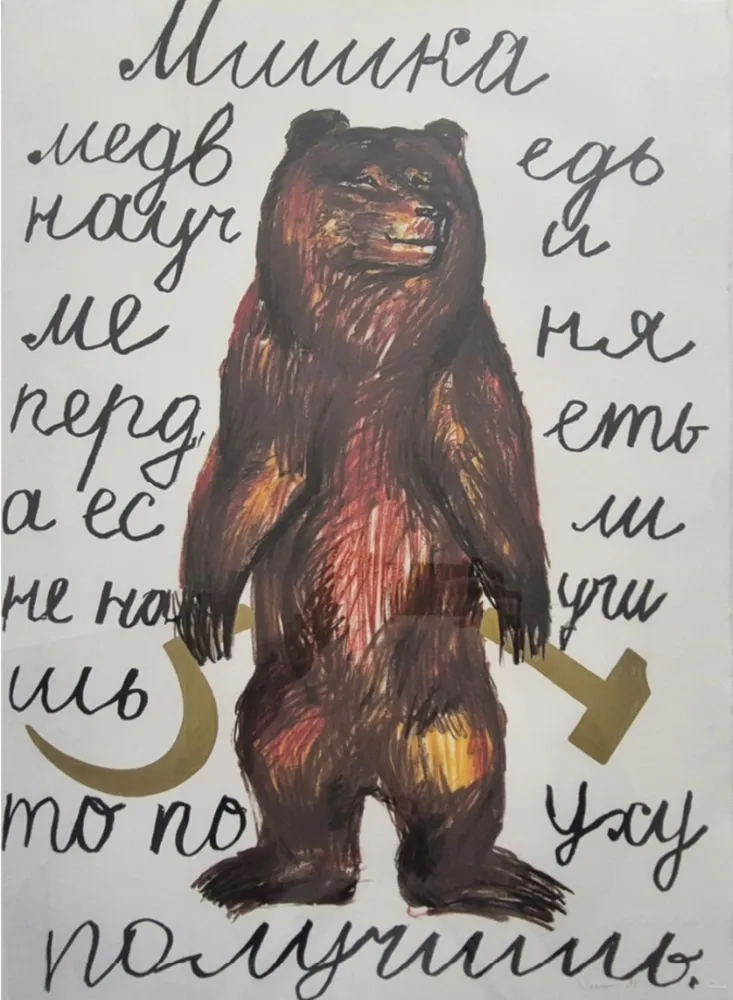 Мишка
медв едь
науч и
ме ня
перд еть
а ес ли
не на учи
шь
то по уху
получишь.